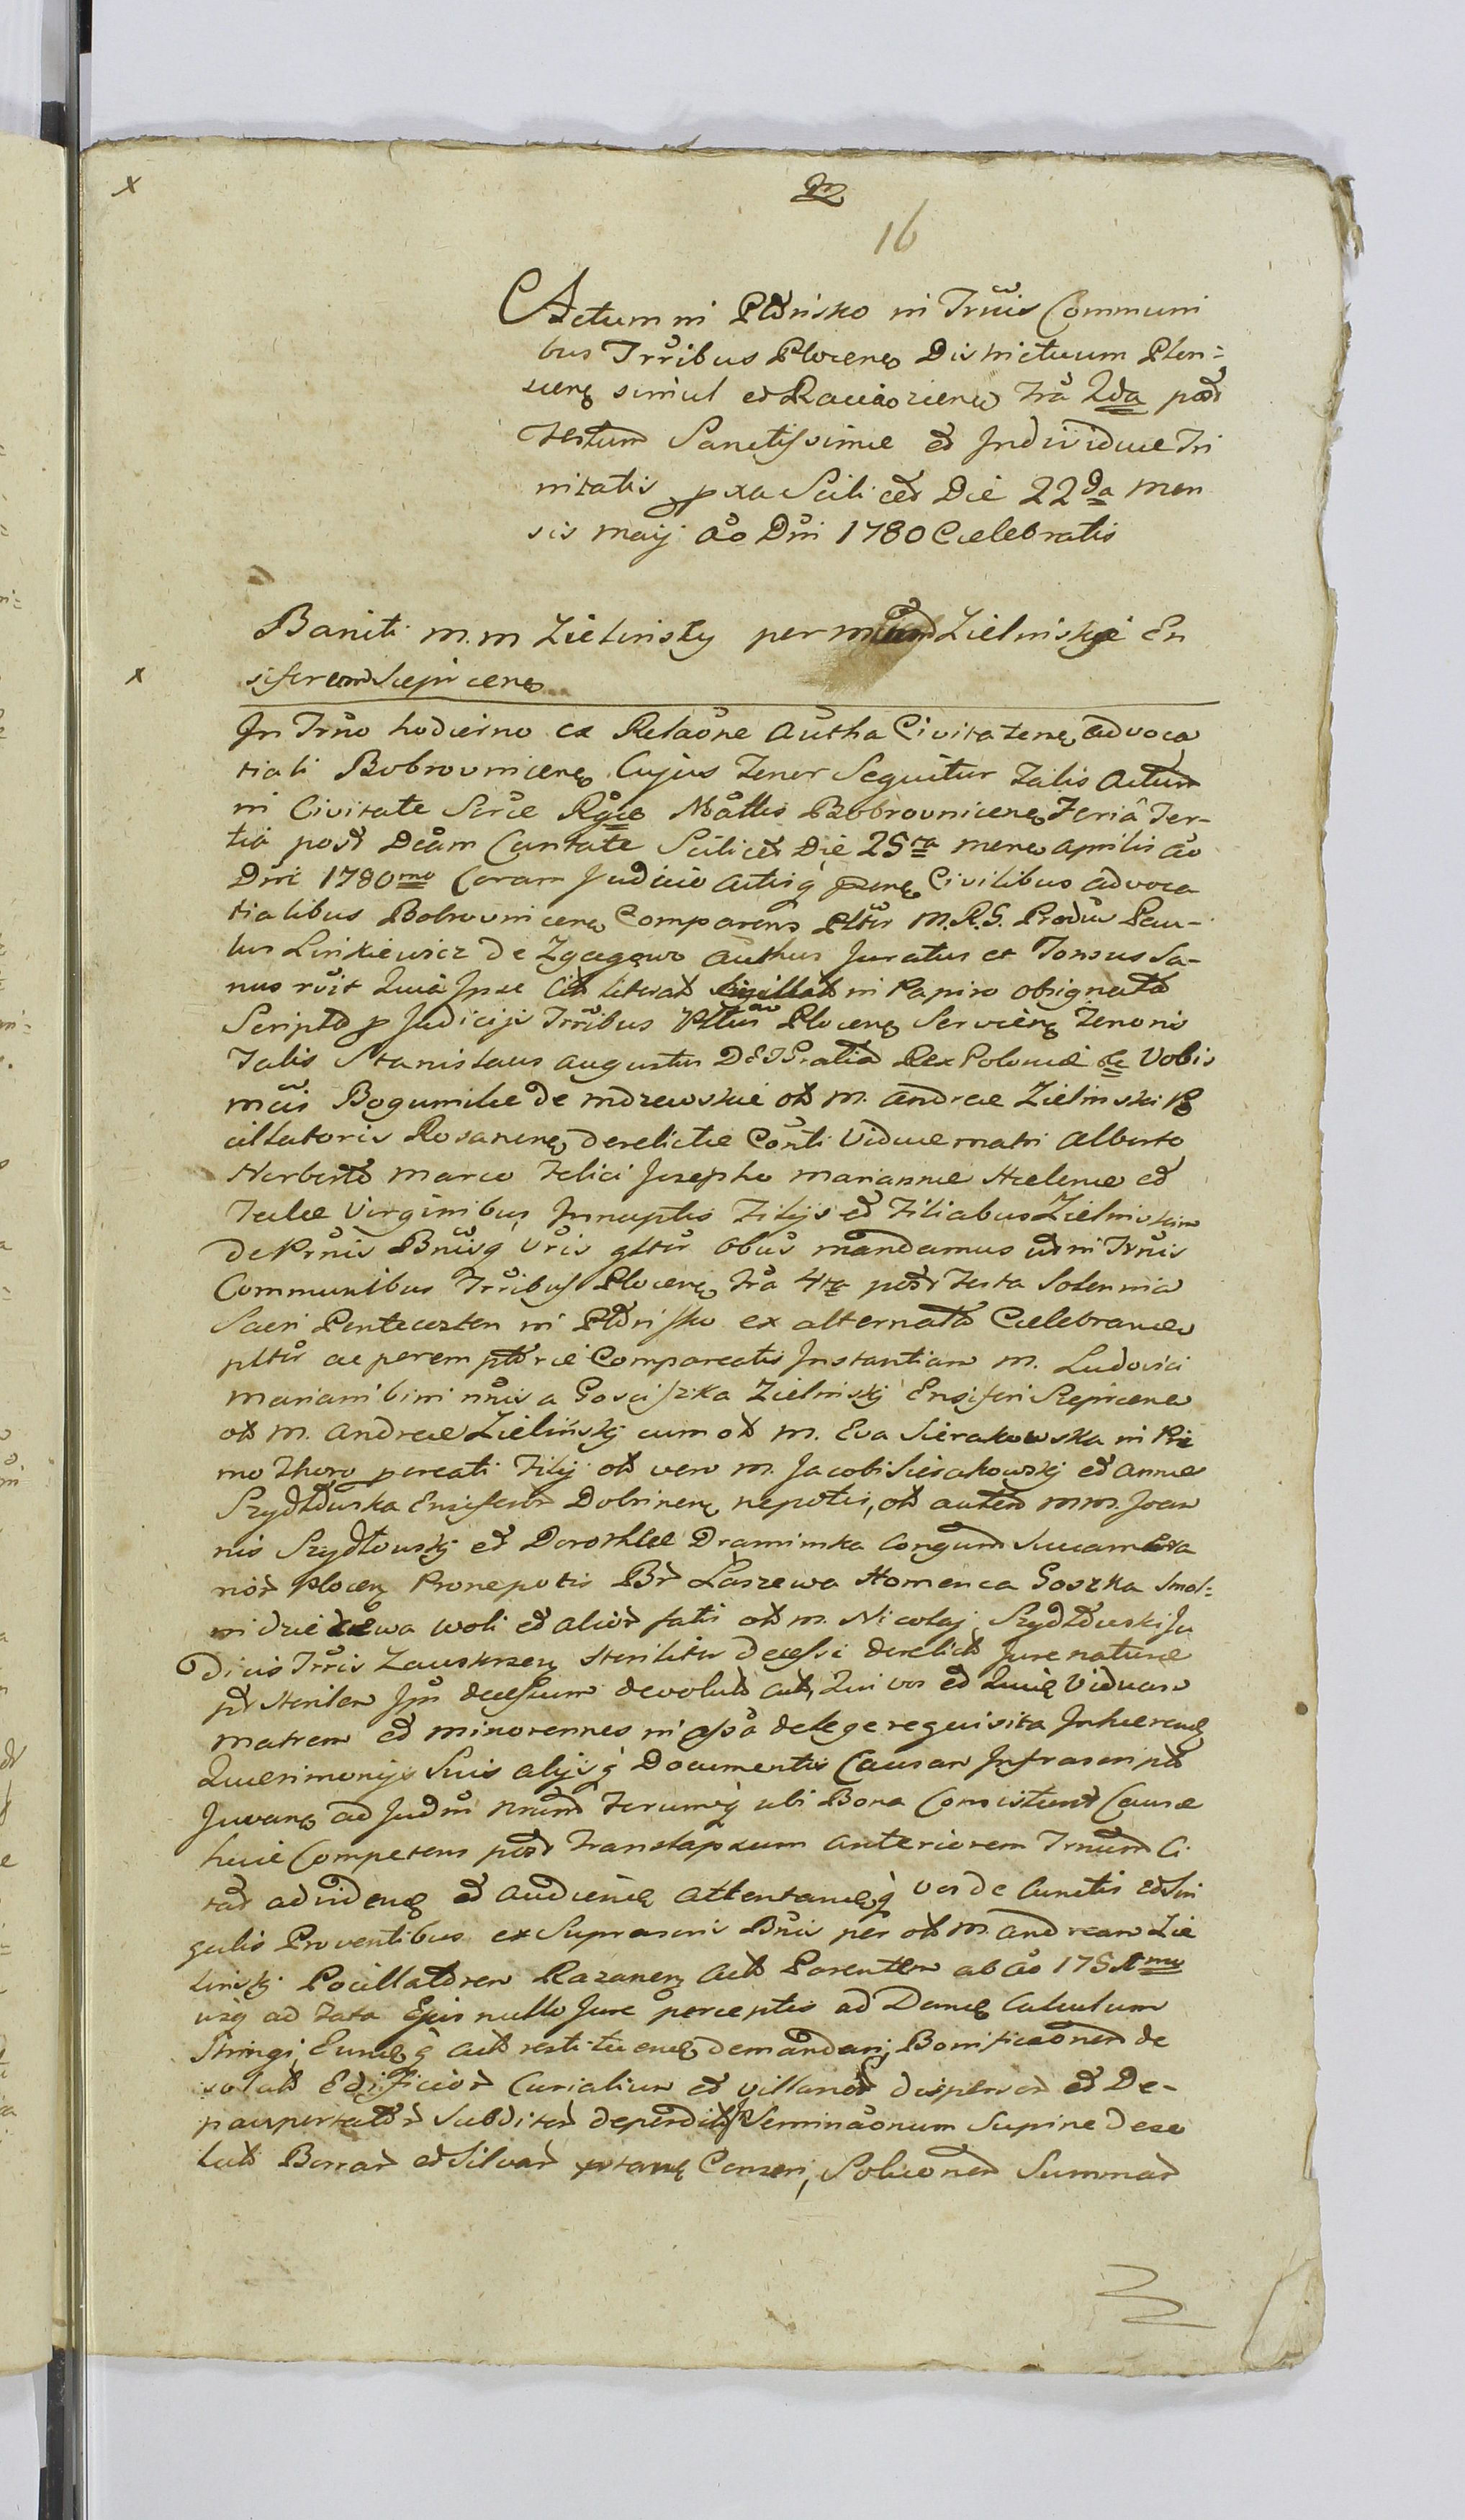 16
Actum in Płonsko in Trnis Communi
bus Trribus Plocens Districtuum Plon=
scens simul et Raciazciens fra 2da post
Festum Sanctissimæ et Individuæ Tri
nitatis pxa Scilicet Die 22da Men
sis Maij Ao Dni 1780 Celebratis
Baniti M. M Zielinsky per M Zielinskie En
siferem Siepicens
x
In Trno hodierno ex Relaone Autha Civitatens Advoca
tiali Bobrovnicens Cujus Tenor Sequitur Talis Actum
in Civitate Scræ Rgiæ Mattis Bobrovnicens Feria Ter-
tia post Dcam Cantate Scilicet Die 25ta mens Aprilis Ao
Dni 1780mo Coram Judicio Actisq Civilibus Advoca
tialibus Bobrovnicens Comparens Pltr M.R.S. Produs Pau-
lus Linkiewicz de Zgagowo Authus Juratus et Tonsus Sa-
nus rcit Quia Ipse Cit Literat Sigillat in Papiro obsignato
Scripto p Judicijs Trribus Pltus Plocens Serviens Tenoris
Talis Stanislaus Augustus DEI Gratia Rex Poloniæ &c Vobis
Mcis Bogumilæ de Mdzewskie ot M. Andreæ Zielinski Po
cillatoris Rosanens derelictæ Conti Viduæ matri Alberto
Norberto Marco Felici Josepho Mariannæ Helenæ et
Teclæ Virginibus Innuptis Filijs et Filiabus Zielinskim
De Prnis Bnisq Vris gltr Obus mandamus ut in Trnis
Communibus Trribus Plocens fra 4ta post Festa Solennia
Sacri Pentecosten in Płonsko ex alternato Celebrands
pltr ac peremptorie Compareatis Instantiam M. Ludovici
Mariani bini nnis a Goscisszka Zielinskj Ensiferi Siepicens
ot M. Andreæ Zielinskj cum ot M. Eva Sierakowska in Pri
mo Thoro pcreati Filij ot vero M. Jacobi Sierakowskj et Annæ
Szydłowska Ensiferor Dobrinens nepotis, ot autem M M. Joan
nis Szydłowskj et Dorothee Draminska Congum Succamera
rior Plocens Pronepotis Br Laszewa Homenca Goszka Smol=
ni dziewa Woli et alior fati ot M. Nicolaj Szydłowski Ju
dicis Trris Zauskrzens Steriliter decessi derelict Jure naturæ
pt Sterilem Ips decessum devolut Act, Qui vos et Quæ Viduam
Matrem et minorennes in assa de lege requisita Inhærens
Quærimonijs Suis alijsq Documentis Causam Infrascript
Juvans ad Judm nrum Ferumq ubi Bona Consistunt Causæ
huic Competens post Translapsum anteriorem Trnum Ci
tat ad videns et audiends Attentandsq vos de Cunctis et Sin
gulis Proventibus ex Suprascris Bnis per ot M. Andream Zie
linskj Pocillatorem Razanens Act Parentem ab Ao
usq ad Fata Ejus nullo Jure perceptis ad Dands Calculum
Stringi, Eumq q Act restituends demandarj, Bonificaonem de
solat Edificior Curialium et Villanor dispersor et De-
pauperator Subditor deperdit Seminaonum Supine deso
lat Bonar et Silvar Censeri, Soluconem Summar